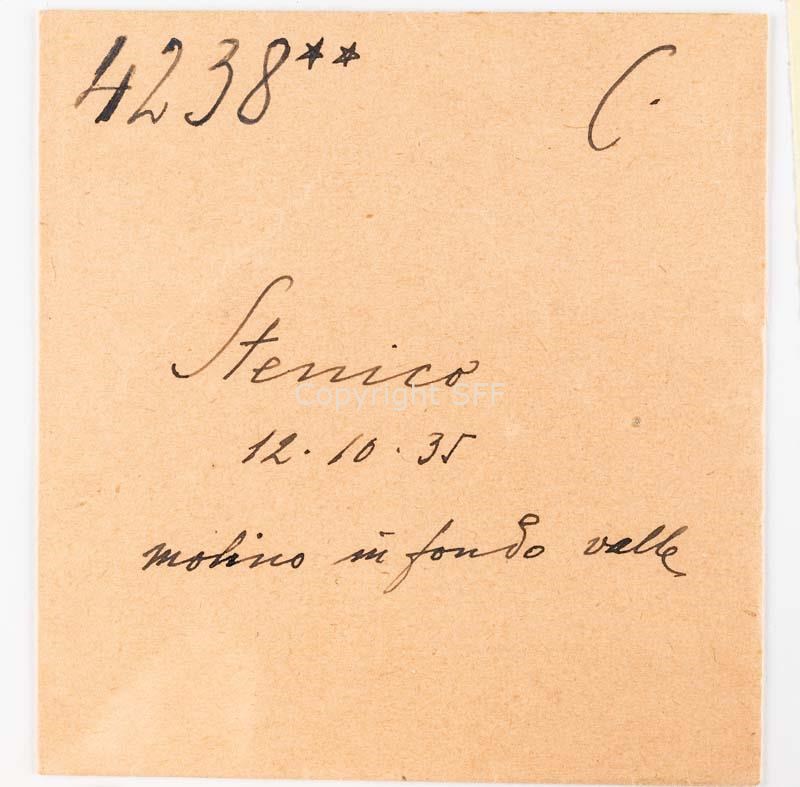 4238** C.
Stenico
Copyright SFF
12.10.35
molino in fondo valle